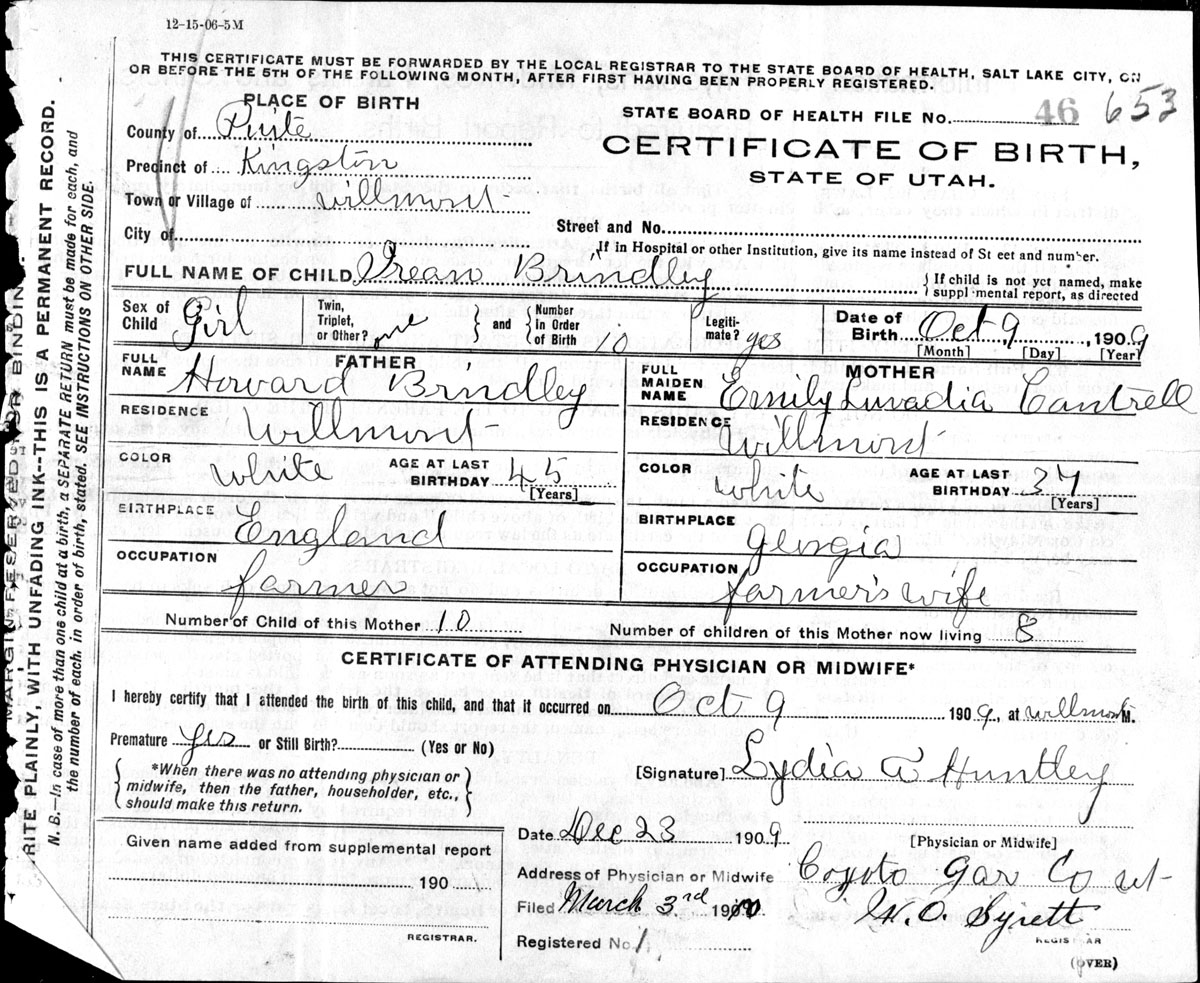 12-15-06-5M
THIS CERTIFICATE MUST BE FORWARDED BY THE LOCAL REGISTRAR TO THE STATE BOARD OF HEALTH, SALT LAKE CITY, ON
OR BEFORE THE 5TH OF THE FOLLOWING MONTH, AFTER FIRST HAVING BEEN PROPERLY REGISTERED.
PLACE OF BIRTH
County of Puite
Precinct of Kingston
Town or Village of Willmont
City of
STATE BOARD OF HEALTH FILE No. 46 653
CERTIFICATE OF BIRTH,
STATE OF UTAH.
Street and No.
If in Hospital or other Institution, give its name instead of St eet and number.
FULL NAME OF CHILD Irean Brindley
{ If child is not yet named, make
suppl mental report, as directed
Sex of Child Girl
Twin, Triplet, or Other? one
and
Number In Order of Birth 10
Legiti- mate? yes
Date of Birth Oct 9, 1909
[Month] [Day] [Year]
FATHER
FULL NAME Howard Brindley
RESIDENCE Willmont
COLOR White
AGE AT LAST BIRTHDAY 45
[Years]
BIRTHPLACE England
OCCUPATION farmer
MOTHER
FULL MAIDEN NAME Emily Luvadia Cantrell
RESIDENCE Willmont
COLOR White
AGE AT LAST BIRTHDAY 37
[Years]
BIRTHPLACE Georgia
OCCUPATION farmer's wife
Number of Child of this Mother 10
Number of children of this Mother now living 8
CERTIFICATE OF ATTENDING PHYSICIAN OR MIDWIFE*
I hereby certify that I attended the birth of this child, and that it occurred on Oct 9 1909, at Willmont M.
Premature yes or Still Birth? (Yes or No)
{ *When there was no attending physician or
midwife, then the father, householder, etc.,
should make this return. }
[Signature] Lydia A Huntley
Date Dec 23 1909
[Physician or Midwife]
Given name added from supplemental report
190
REGISTRAR.
Address of Physician or Midwife Coyoto Gar Co ut
Filed March 3rd 1910
Registered No. 1
W. O. Syrett
REGISTRAR
(OVER)
MARGIN RESERVED FOR BINDING.
RITE PLAINLY, WITH UNFADING INK--THIS IS A PERMANENT RECORD.
N. B.—In case of more than one child at a birth, a SEPARATE RETURN must be made for each, and
the number of each, in order of birth, stated. SEE INSTRUCTIONS ON OTHER SIDE.